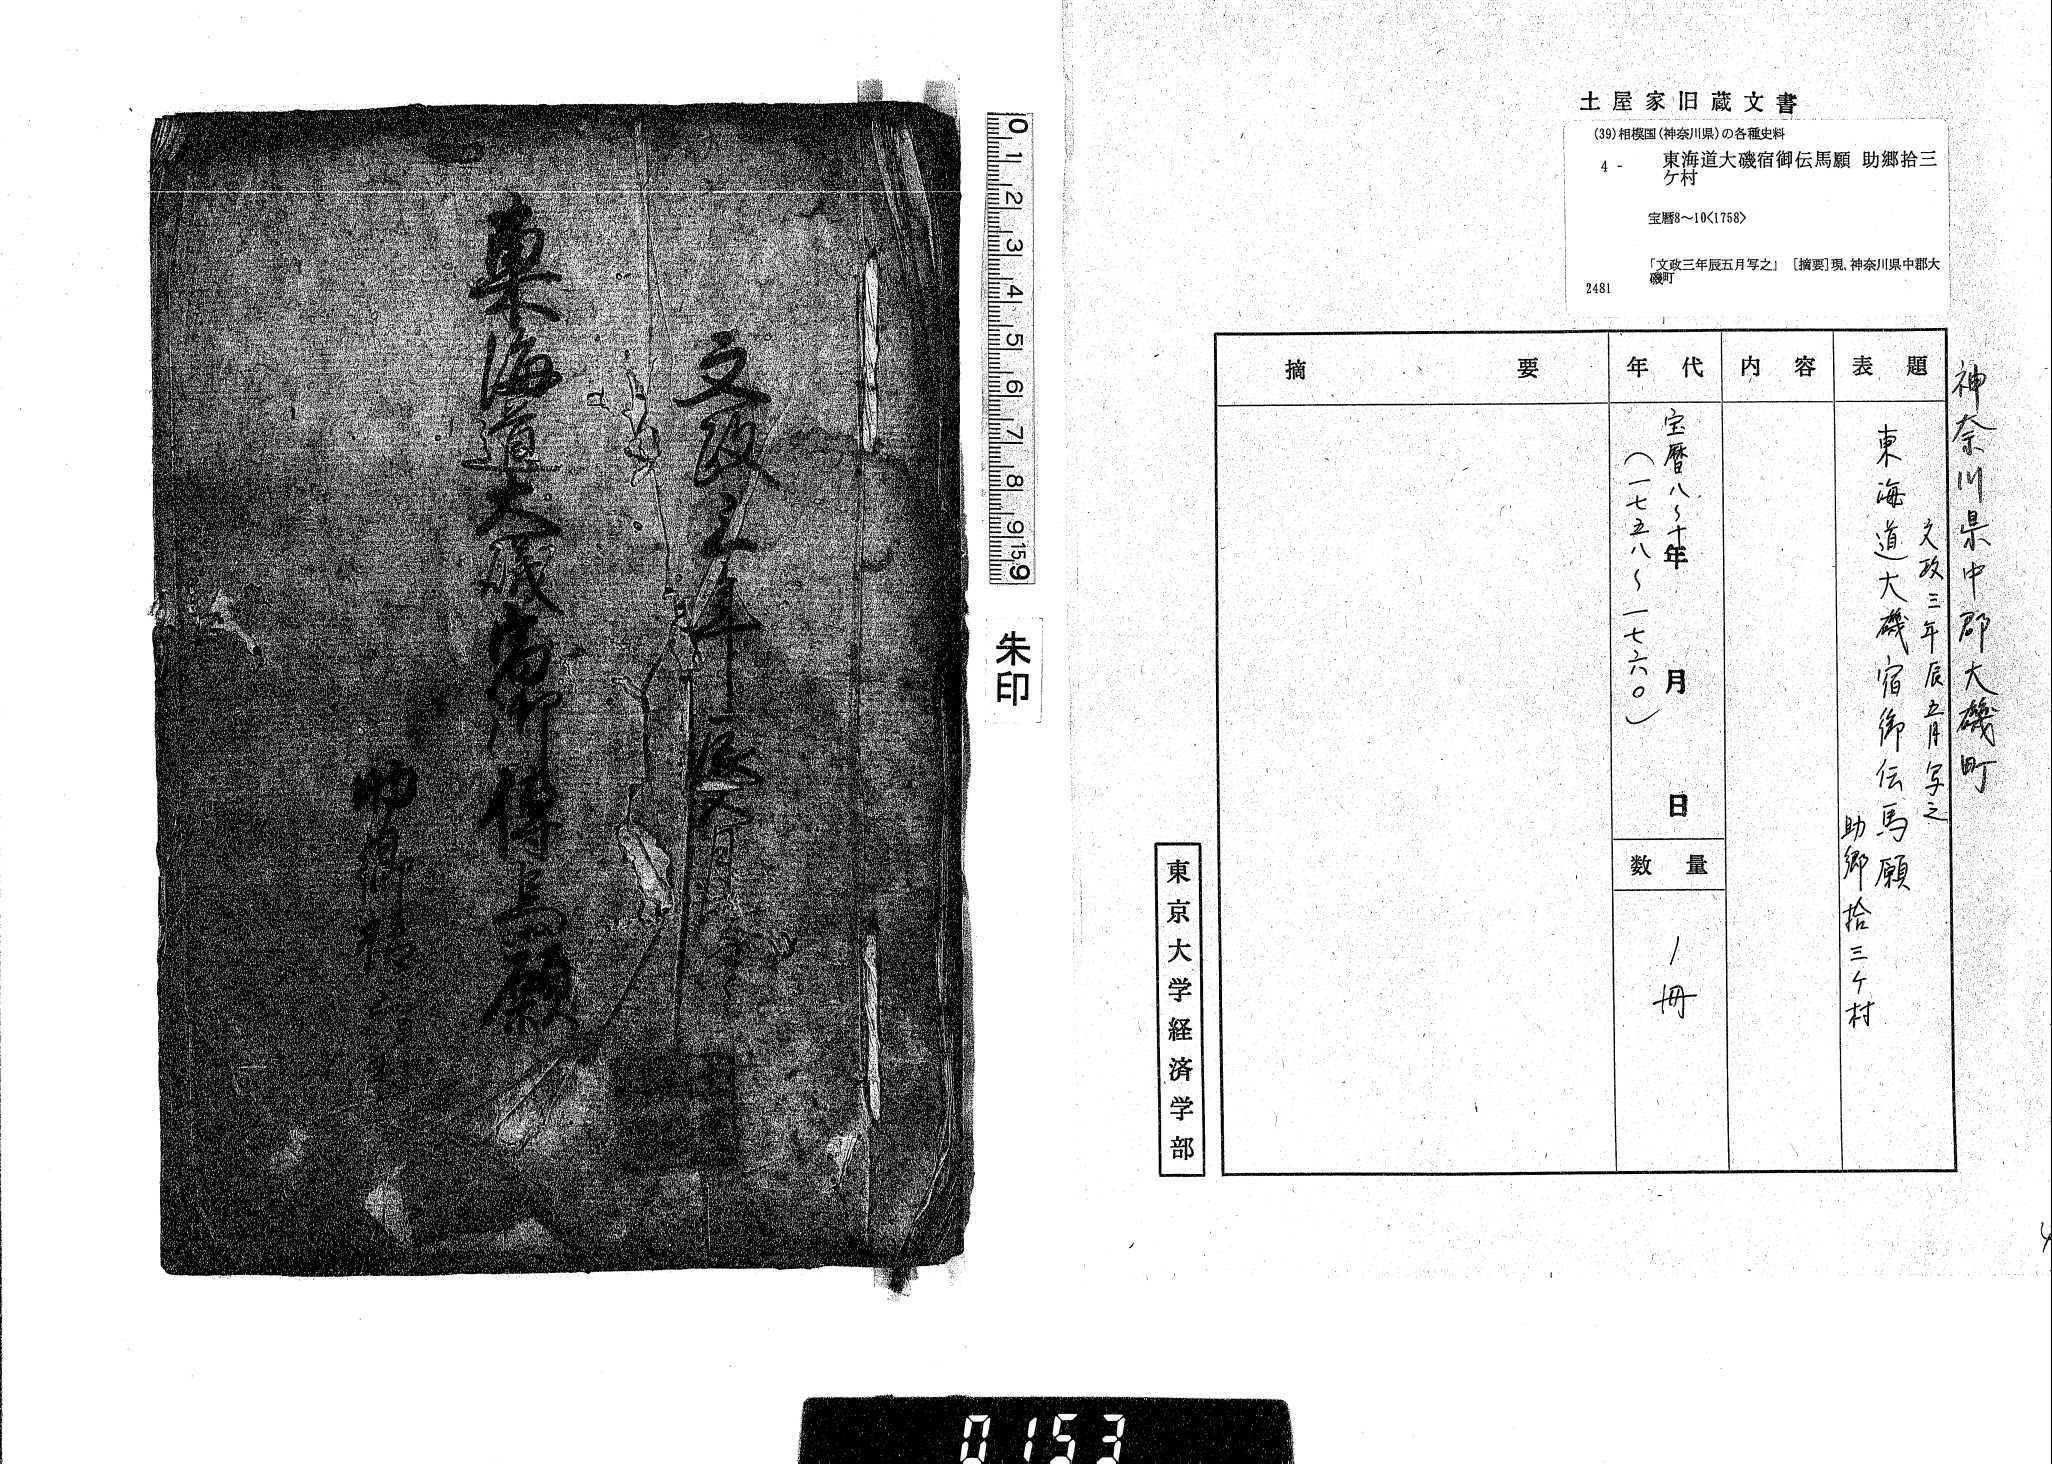 土屋家旧蔵文書
(39)相模国(神奈川県)の各種史料
4 - 東海道大磯宿御伝馬願 助郷拾三
ケ村
宝暦8～10<1758>
「文政三年辰五月写之」 [摘要]現,神奈川県中郡大
磯町
2481
神奈川県中郡大磯町
表題
文政三年辰五月写之
東海道大磯宿御伝馬願
助郷拾三ヶ村
内容
年代
宝暦八～十年 月 日
(一七五八～一七六〇)
数量
1冊
摘要
東京大学経済学部
0 1 2 3 4 5 6 7 8 9 15 9
朱印
文政三年辰五月写之
東海道大磯宿御傳馬願
助郷拾三
0153